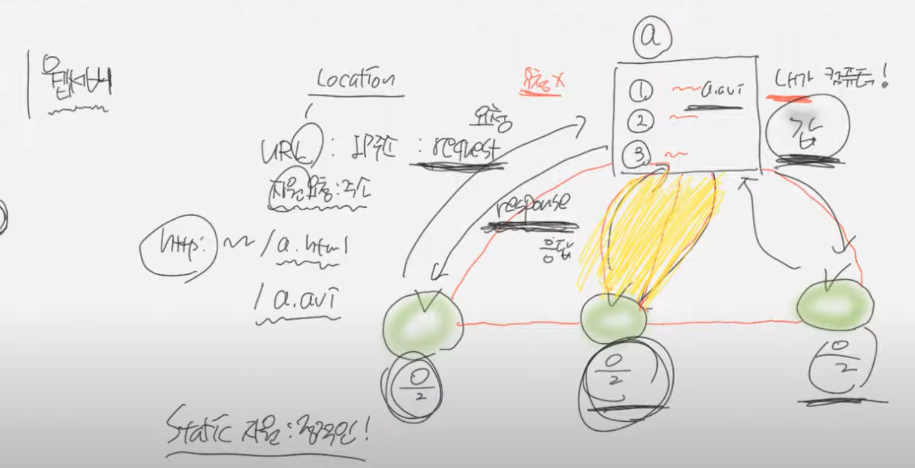 웹서버
Location
URL : IP주소 : request
요청
자원요청 : 주소
http: ~ /a.html
/a.avi
Static 자원 : 정적인!
요청X
a
① ~ a.avi
② ~
③ ~
내가 컴퓨터!
갑
response
응답
을
을
을